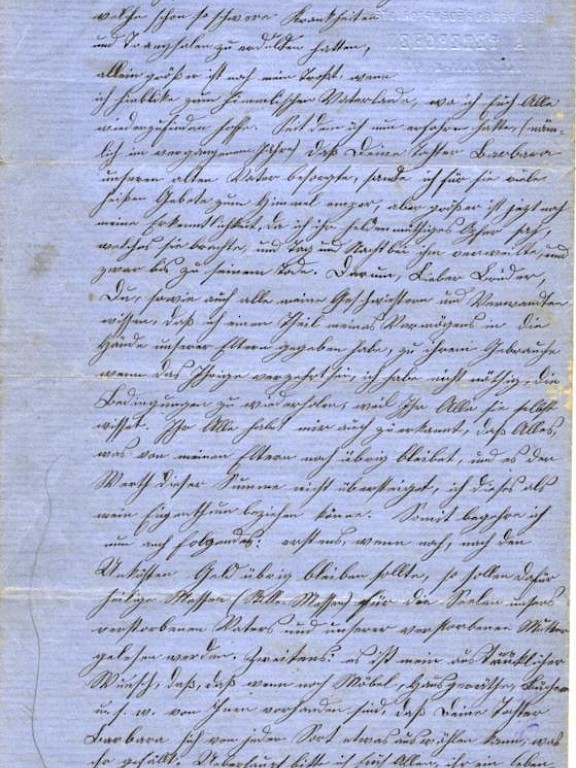 welche schon so schwere Krankheiten
und Drangsalen zu erdulden hatten,
allein größer ist noch mein Trost, wenn
ich hinblicke zum himmlischen Vaterlande, wo ich Euch Alle
wiederzufinden hoffe. Seit dem ich nun erfahren hatte, (näm-
lich im vergangenen Jahre) daß Deine Tochter Barbara
unseren alten Vater besorgte, sand ich für sie viele
heißen Gebete zum Himmel empor, aber größer ist jezt noch
meine Erkenntlichkeit, da ich ihr heldenmüthiges Opfer sah,
welches sie brachte, und Tag und Nacht bei ihm verweilte, und
zwar bis zu seinem Tode. Darum, Lieber Bruder,
Du, sowie auch alle meine Geschwistern und Verwandten
wissen, daß ich einen Theil meines Vermögens in die
Hände unserer Eltern gegeben habe, zu ihrem Gebrauche
wenn das Ihrige verzehrt sei, ich habe nicht nöthig, die
Bedingungen zu wiederholen, weil Ihr Alle sie selbst
wisset. Ihr Alle habt mir auch zuerkannt, daß Alles,
was von meinen Eltern noch übrig bleibet, und es den
Werth dieser Summe nicht übersteiget, ich dieses als
mein Eigenthum beziehen könne. Somit begehre ich
nun noch folgendes: erstens, wenn noch, nach den
Unkosten Geld übrig bleiben sollte, so sollen dafür
heilige Messen (Stille Messen) für die Seelen unsers
verstorbenen Vaters und unserer verstorbenen Mutter
gelesen werden. Zweitens: es ist mein ausdrücklicher
Wunsch, daß, daß wenn noch Möbel, Hausgeräthe, Bücher
u. s. w. von Ihnen vorhanden sind, daß Deine Tochter
Barbara sich von jeder Sort etwas auswählen kann, was
ihr gefällt. Ueberhaupt bitte ich Euch Allen, ihr ein leben-